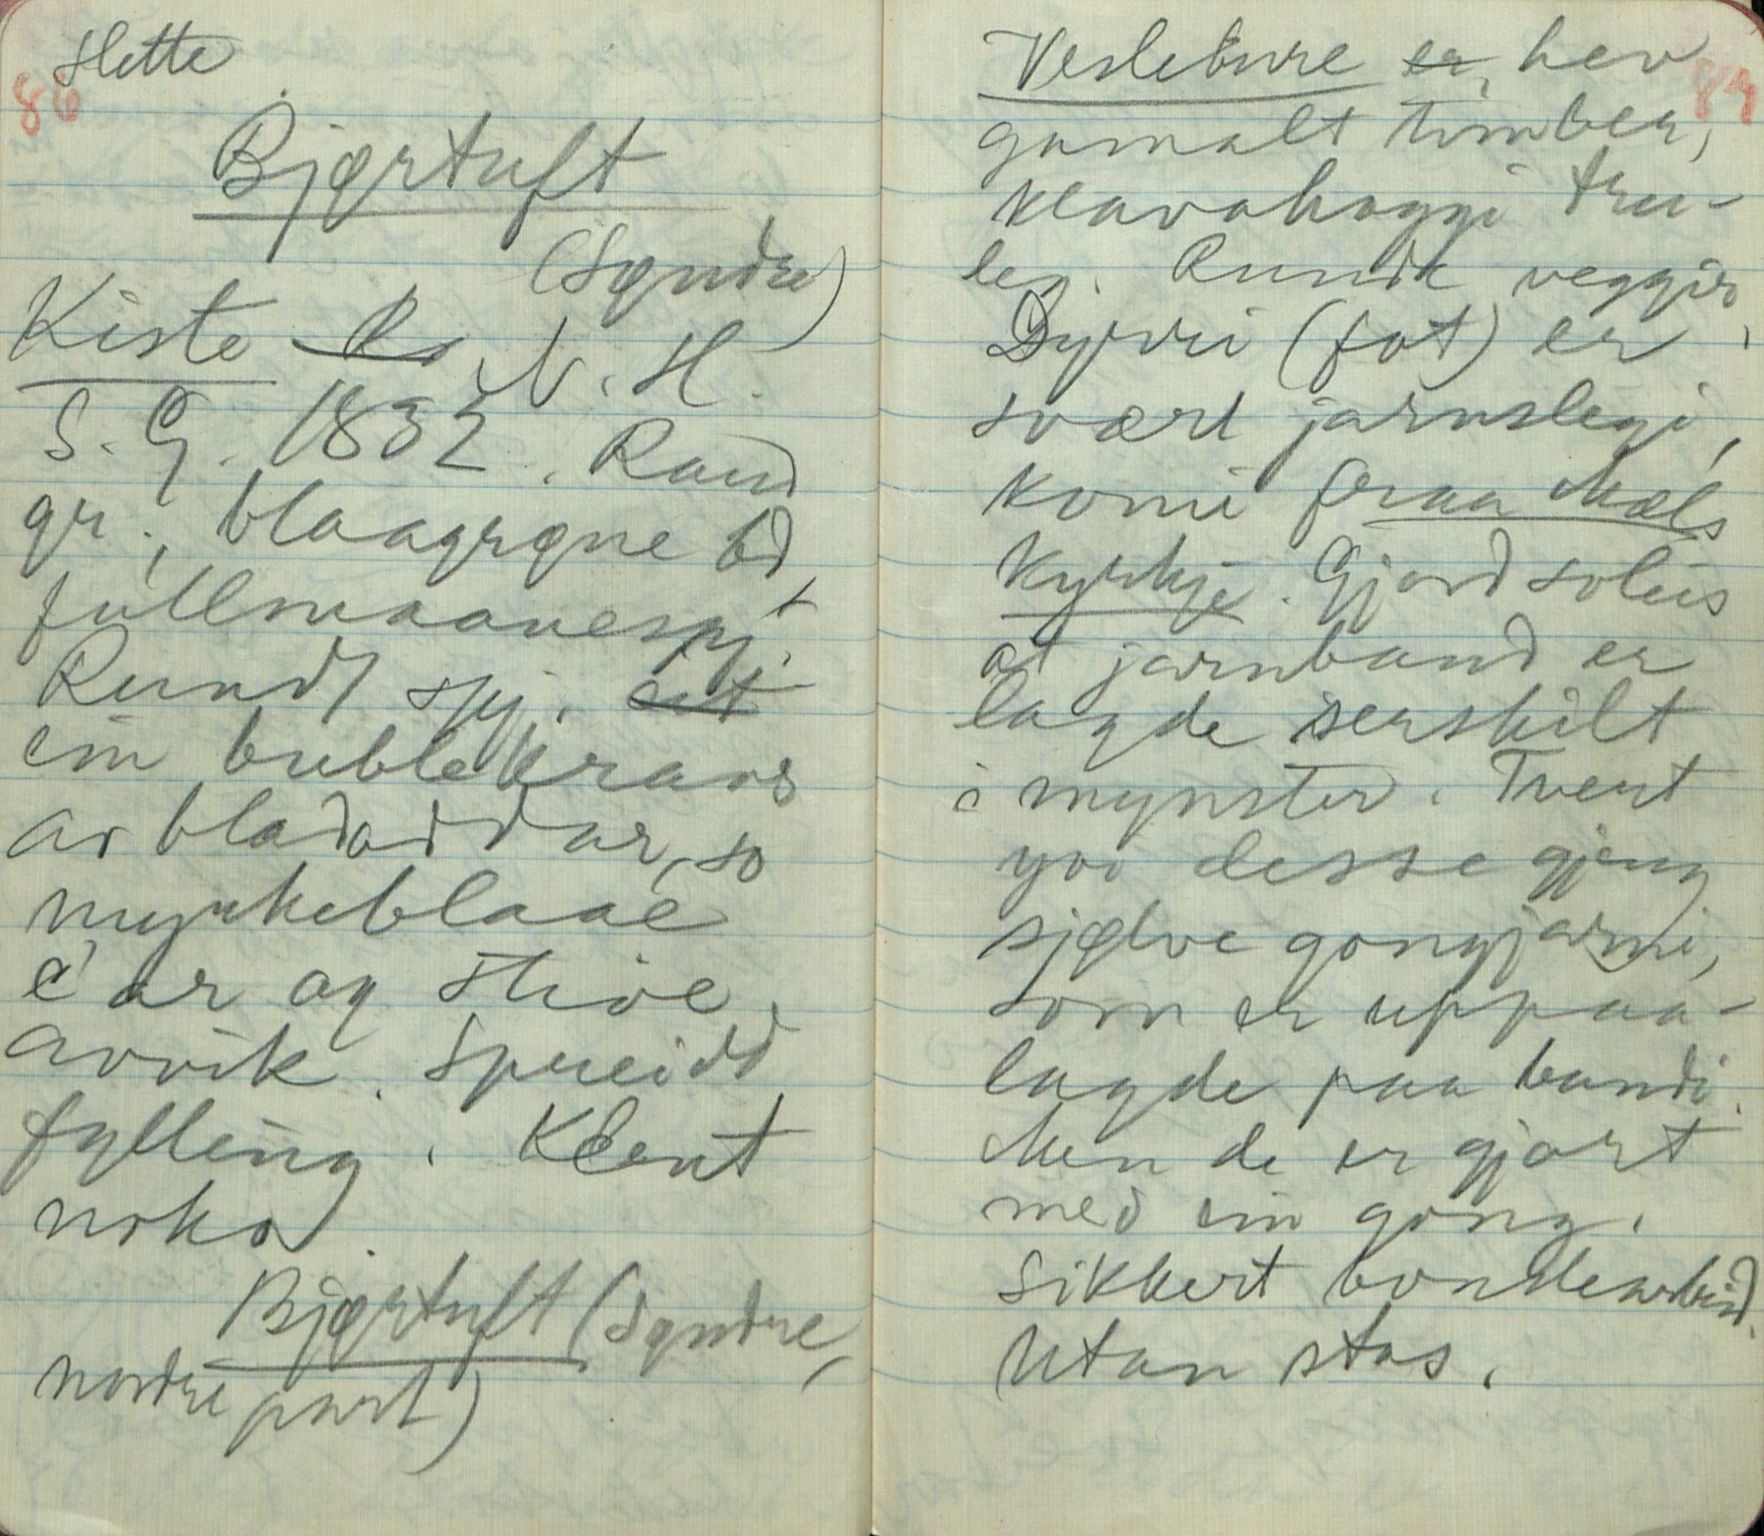 slette
86
Bjørtuft
(Søndre)
Kiste N. H.
S. G. 1832. Raud
gr., blaagrøne bd,
fullmaanespj.
Rundt spj.
ein bublekrans
av bladoddar, so
myrkeblaae
c'ar og stive
avvik. Spreidd
fylling. Klent
noko.
Bjørtuft (Søndre,
nordre part)
87
Veslebure er, hev
gamalt timber,
klavahoggi tru-
leg. Runde veggir,
Dyrri (fat) er
svært jarnslegi,
komi fraa Mæls
kyrkje. Gjord soleis
at jarnband er
lagde serskilt
i mynster. Tvert
yvi desse gjeng
sjølve gongjarni,
som er uppaa-
lagde paa bandi.
Men de er gjort
med ein gong.
Sikkert bondearbeid.
Utan stas.